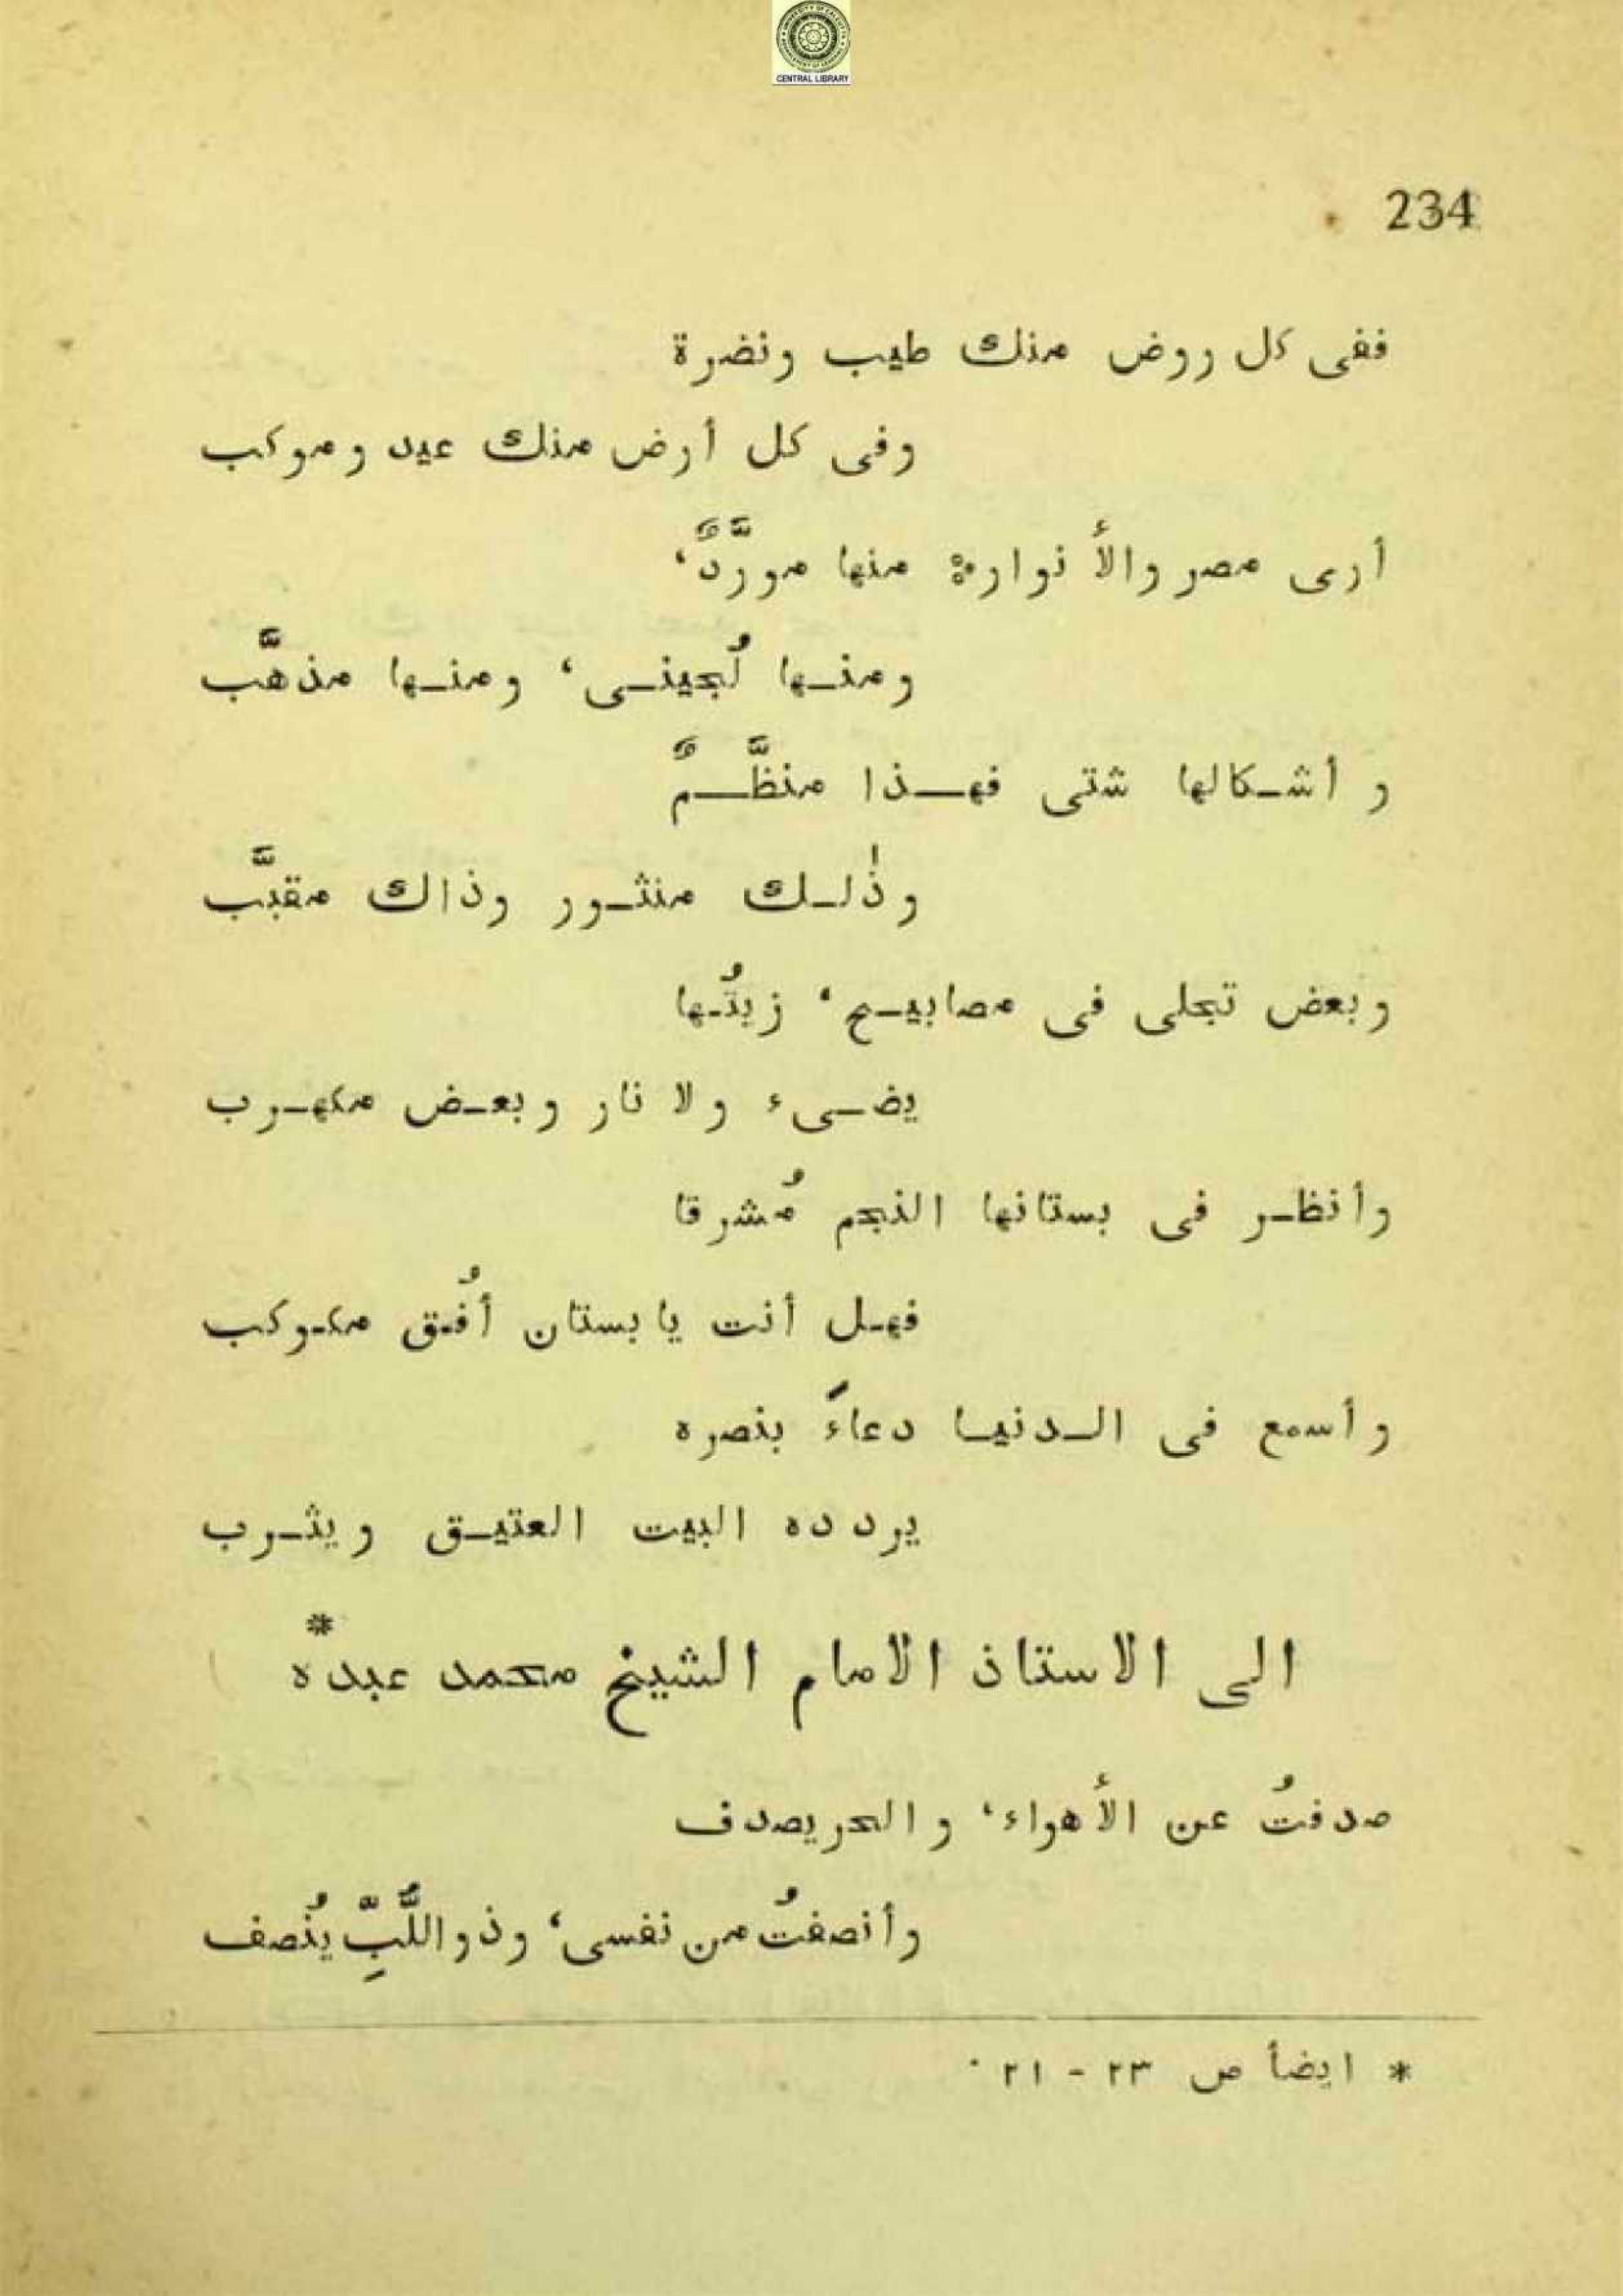 CENTRAL LIBRARY
234
ففى كل روض منك طيب ونضرة
وفى كل أرض منك عيد وموكب
أرى مصر والأنوار: منها مورَّدٌ،
ومنها لُجينى، ومنها مذهَّب
وأشكالها شتى فهذا منظَّمٌ
وذٰلك منثور وذاك مقبَّب
وبعض تجلى فى مصابيح، زيتُها
يضىء ولا نار وبعض مكهرب
وأنظر فى بستانها النجم مُشرقا
فهل أنت يا بستان أفُق مكوكب
وأسمع فى الدنيا دعاءَ بنصره
يردده البيت العتيق ويثرب
الى الاستاذ الامام الشيخ محمد عبده*
صدفتُ عن الأهواء، والحر يصدف
وأنصفتُ من نفسى، وذو اللُّبِّ يُنصف
* ايضاً ص ٢٣ - ٢١ ٠